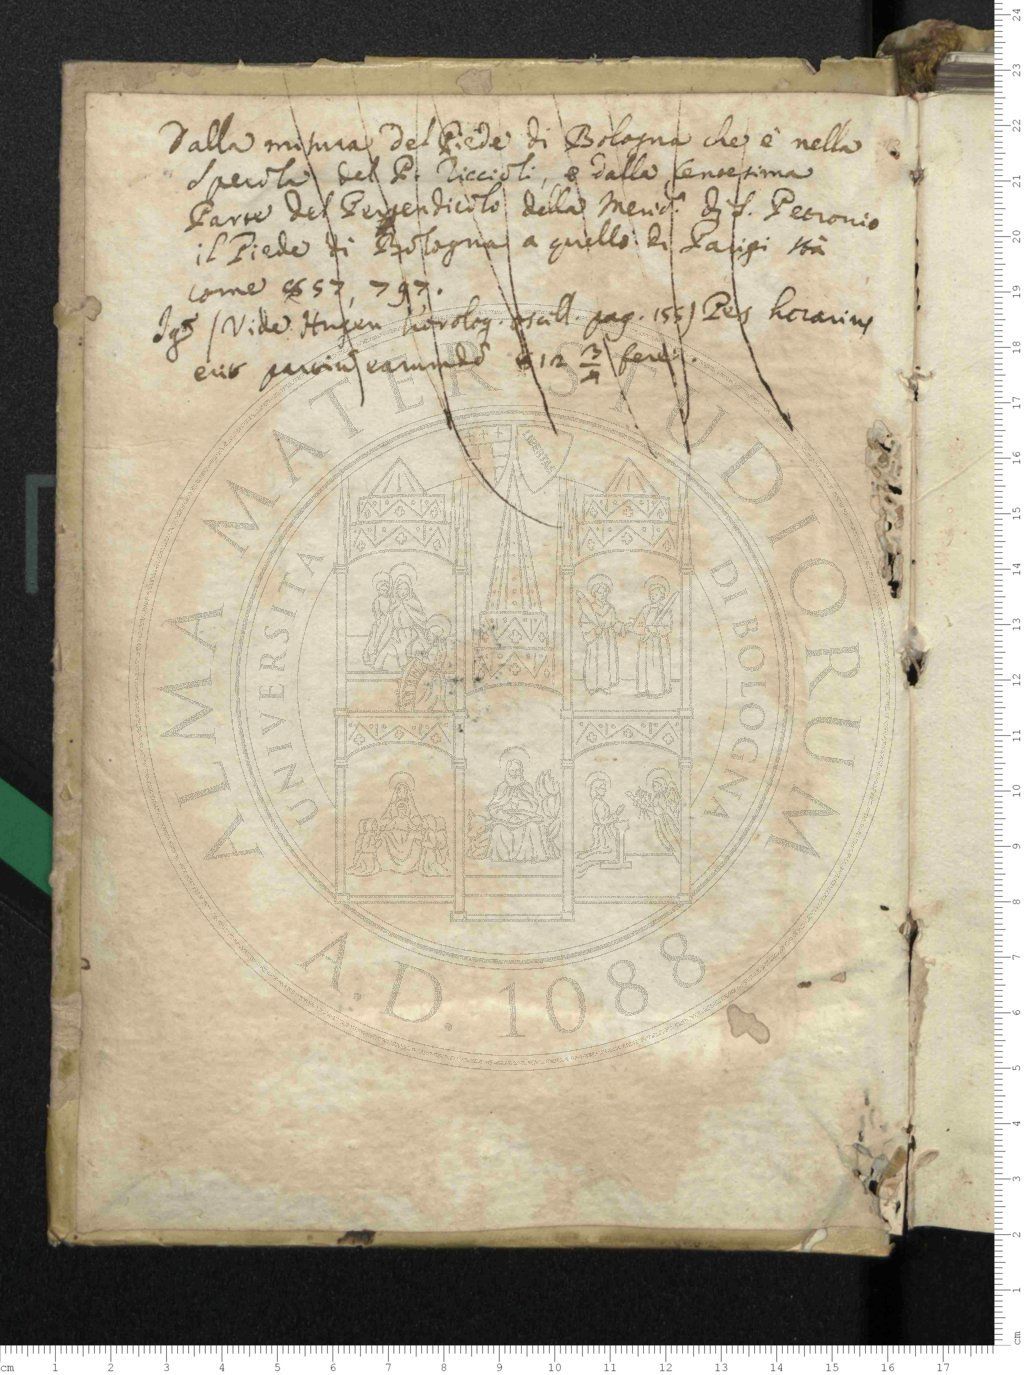 Dalla misura del Piede di Bologna che è nella
del P. Riccioli, e dalla Centesima
Parte del Perpendicolo della Merid.ª di S. Petronio
il Piede di Bologna a quello di Parigi stà
come 857, 797.
(Vide Hugen horolog. oscill. pag. 155) Pes horarius
erit partiũ earundẽ 812 3/4 fere.
LIBERTAS
ALMA MATER STUDIORUM
UNIVERSITA DI BOLOGNA
A.D. 1088
24
23
22
21
20
19
18
17
16
15
14
13
12
11
10
9
8
7
6
5
4
3
2
1
cm
cm 1 2 3 4 5 6 7 8 9 10 11 12 13 14 15 16 17